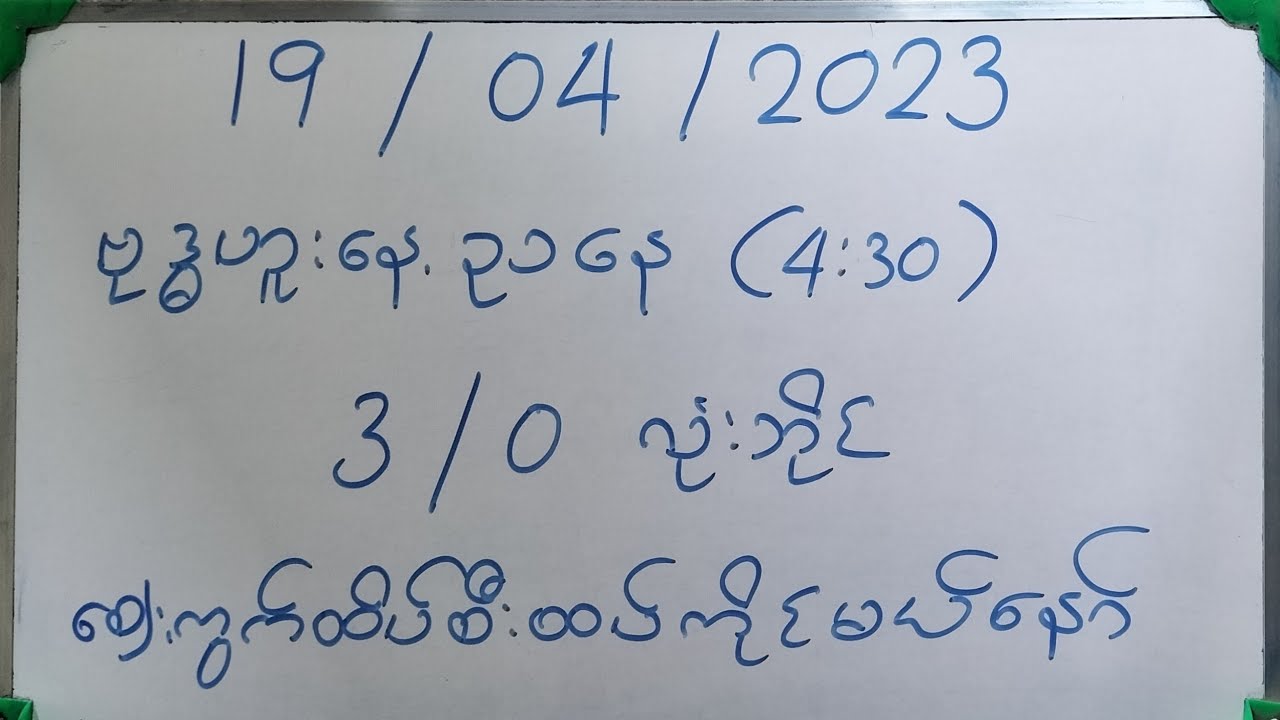 19 / 04 / 2023
ဗုဒ္ဓဟူးနေ့ ညနေ (4:30)
3 / 0 လုံးဘိုင်
ဈေးကွက်ထိပ်စီးထပ်ကိုင်မယ်နော်